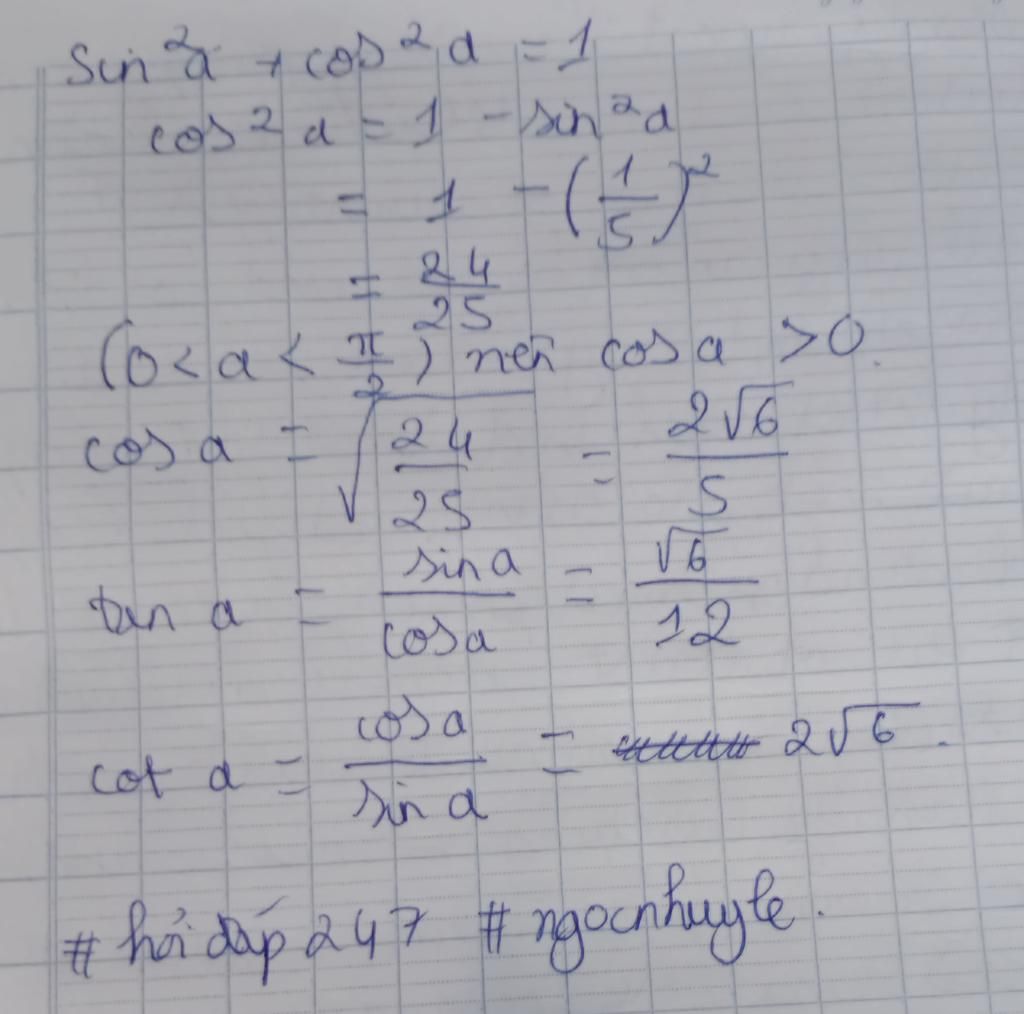 sin²a + cos²a = 1
cos²a = 1 - sin²a
= 1 - (1/5)²
= 24/25
(0 < a < π/2) nên cos a > 0.
cos a = √(24/25) = 2√6/5
tan a = sin a/cos a = √6/12
cot a = cos a/sin a = 2√6.
# hỏi đáp 247 # ngocnhuyle.